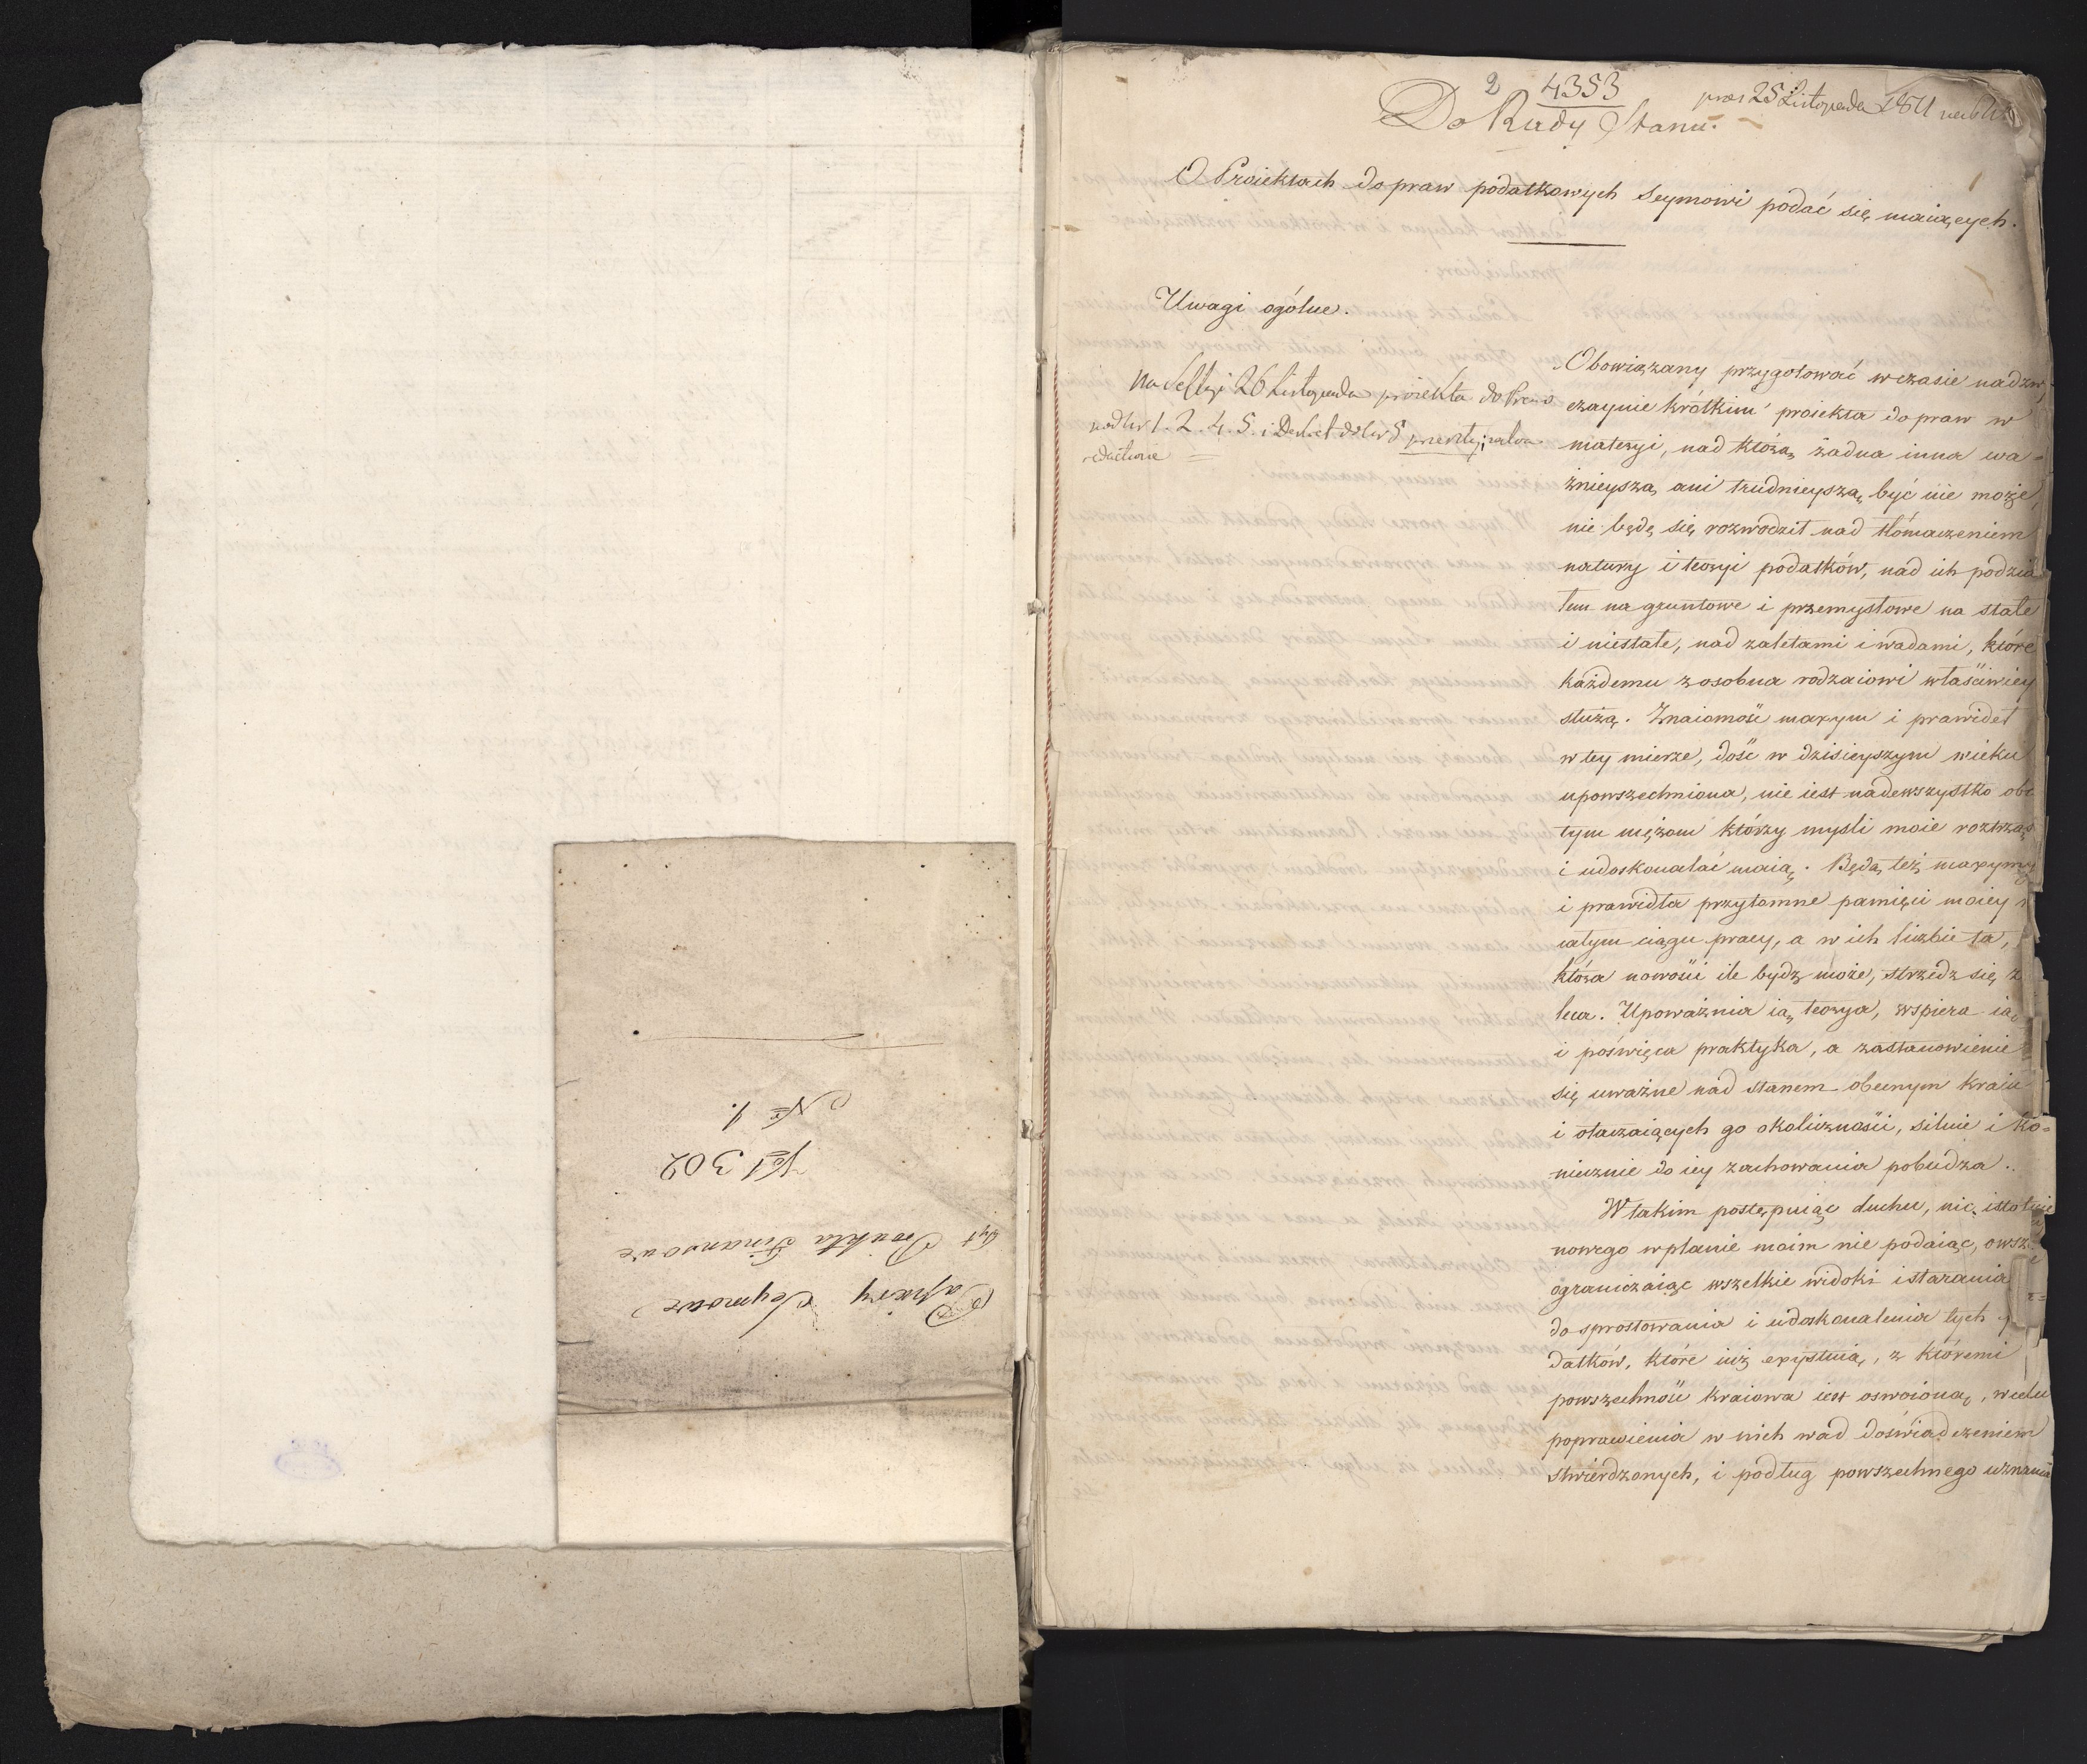 Papiery Seymowe
Proiekta Finansowe
Vol 302
№ 1.
2 4353
25 Listopada 1811
Do Rady Stanu.
O Proiektach do praw podatkowych Seymowi podać się maiących.
Uwagi ogólne.
Na Sessyi 26 Listopada proiekta do Praw
pod N 1. 2. 4. 5. i Dekret do N 5 przyięty; salva
redactione
Obowiązany przygotować w czasie nadzwy
czaynie krótkim proiekta do praw w
materyi, nad którą żadna inna wa=
żnieyszą ani trudnieyszą być nie może,
nie będę się rozwodzit nad tłómaczeniem
natury i teoryi podatków, nad ich podzia
łem na gruntowe i przemysłowe na stałe
i niestałe, nad zaletami i wadami, które
każdemu z osobna rodzaiowi właściwiey
służą. Znaiomość maxym i prawideł
w tey mierze, dość w dzisieyszym wieku
upowszechniona, nie iest nadewszystko obc
tym mężom którzy myśli moie roztrząs
i udoskonalać maią. Będą też maxymy
i prawidła przytomne pamięci moiey
całym ciągu pracy, a w ich liczbie ta,
która nowości ile bydź może, strzedz się z
leca. Upoważnia ią teorya, wspiera ią
i poświęca praktyka, a zastanowienie
się uważne nad stanem obecnym kraiu
i otaczaiących go okoliczności, silnie i ko=
niecznie do iey zachowania pobudza.
W takim postępuiąc duchu, nic istotnie
nowego w planie moim nie podaiąc, owsze
ograniczaiąc wszelkie widoki i starania
do sprostowania i udoskonalenia tych
datków, które iuż exystuią, z któremi
powszechność kraiowa iest oswoioną, wielu
poprawienia w nich wad doświadczeniem
stwierdzonych, i podług powszechnego uznania